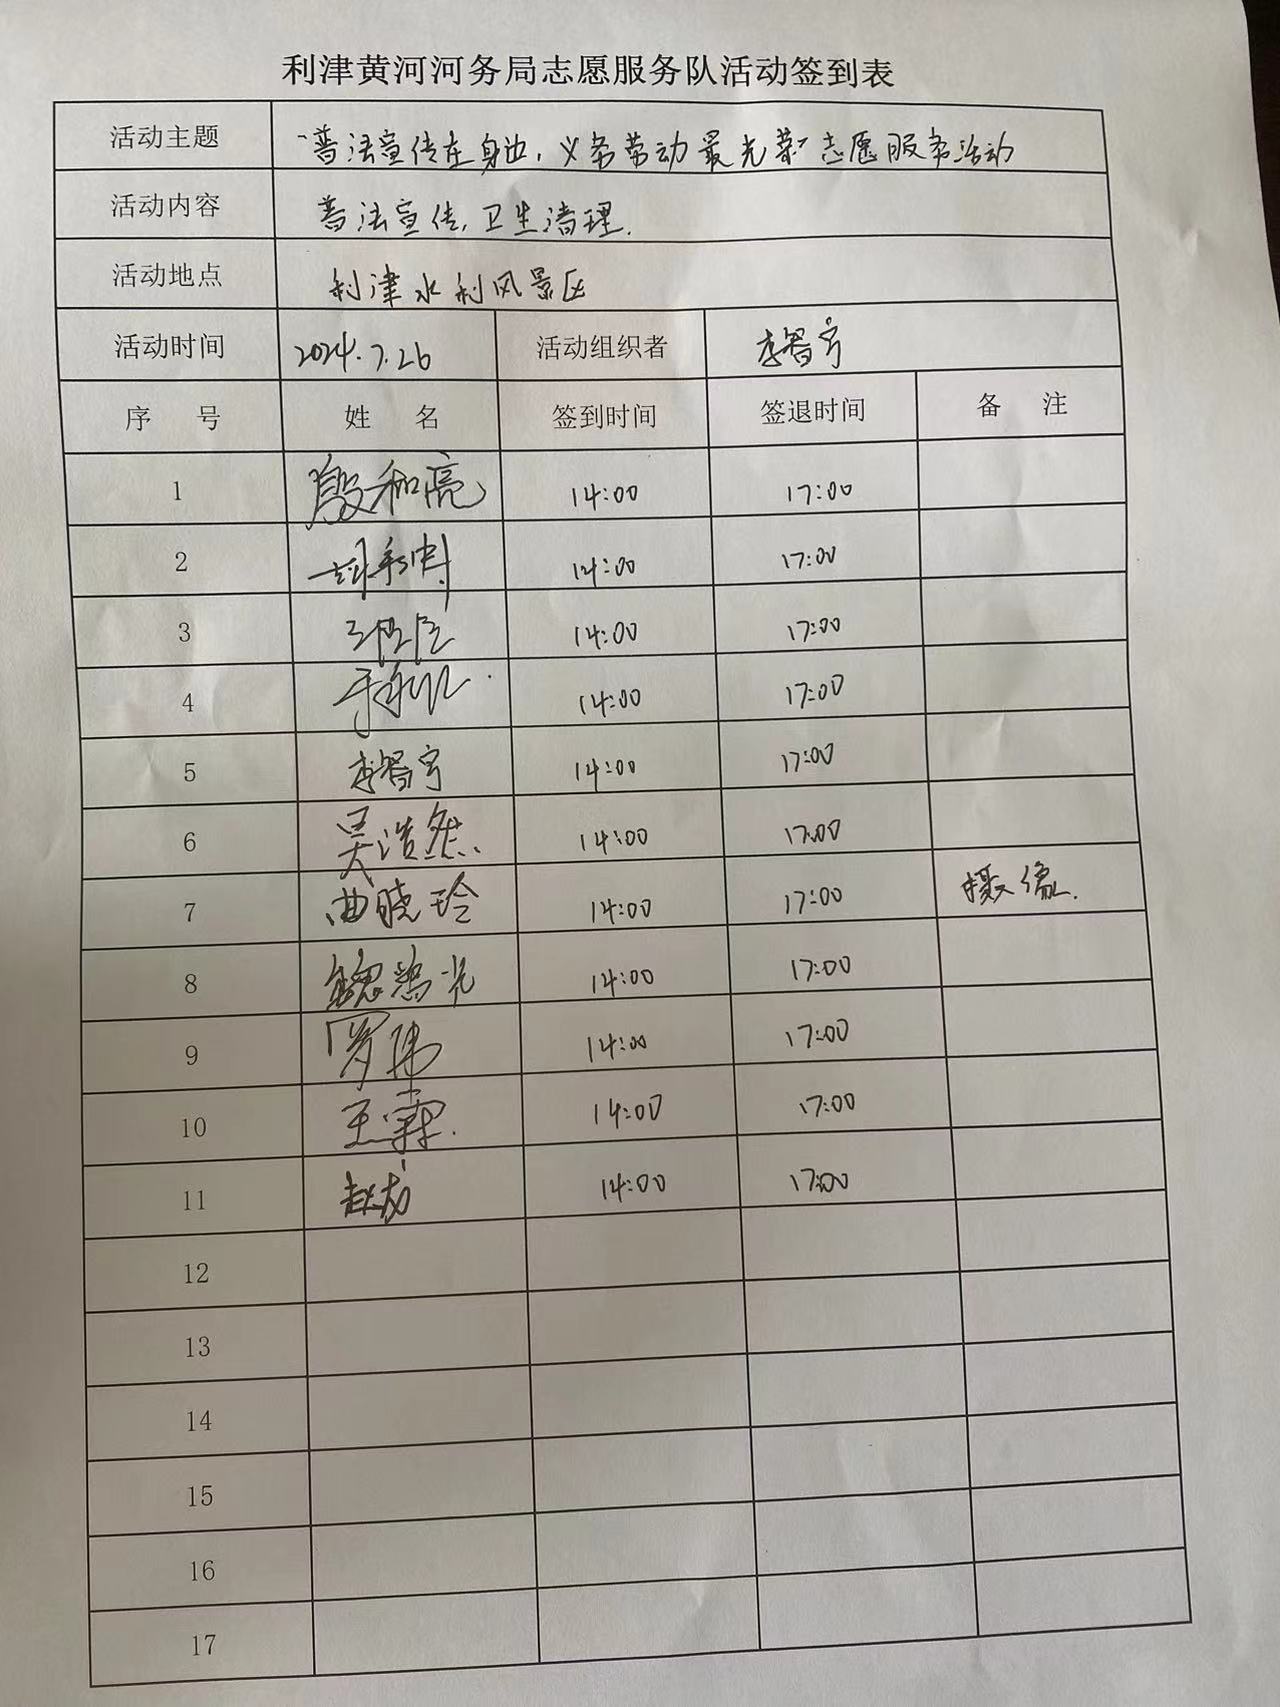 利津黄河河务局志愿服务队活动签到表
活动主题 “普法宣传在身边,义务劳动最光荣”志愿服务活动
活动内容 普法宣传,卫生清理.
活动地点 利津水利风景区
活动时间 2024.7.26 活动组织者 李智宇
序号 姓名 签到时间 签退时间 备注
1 殷和亮 14:00 17:00
2 14:00 17:00
3 14:00 17:00
4 14:00 17:00
5 李智宇 14:00 17:00
6 吴浩然 14:00 17:00
7 曲晓玲 14:00 17:00 摄像.
8 14:00 17:00
9 罗伟 14:00 17:00
10 王霖 14:00 17:00
11 赵龙 14:00 17:00
12
13
14
15
16
17